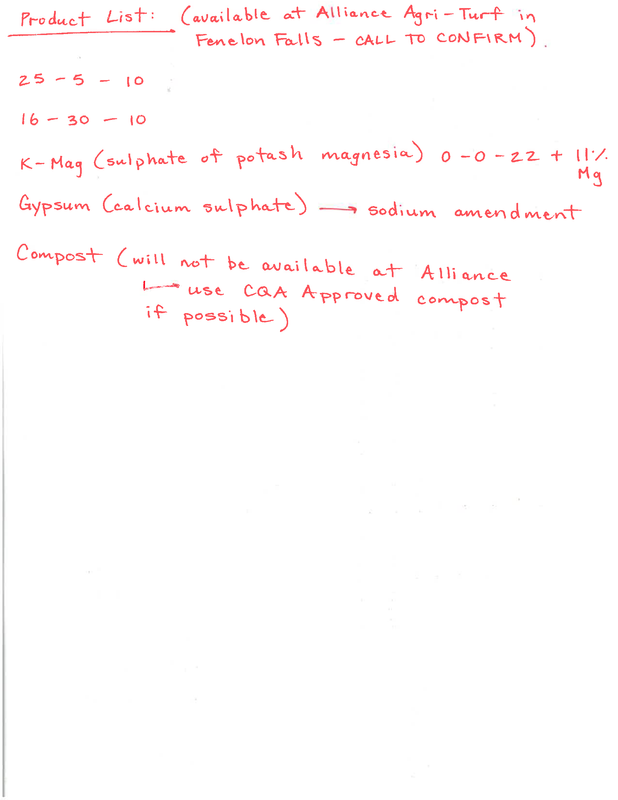 Product List: (available at Alliance Agri-Turf in
Fenelon Falls - CALL TO CONFIRM).
25-5-10
16-30-10
K-Mag (sulphate of potash magnesia) 0-0-22 + 11%
Mg
Gypsum (calcium sulphate) → sodium amendment
Compost (will not be available at Alliance
↳ use CQA Approved compost
if possible)